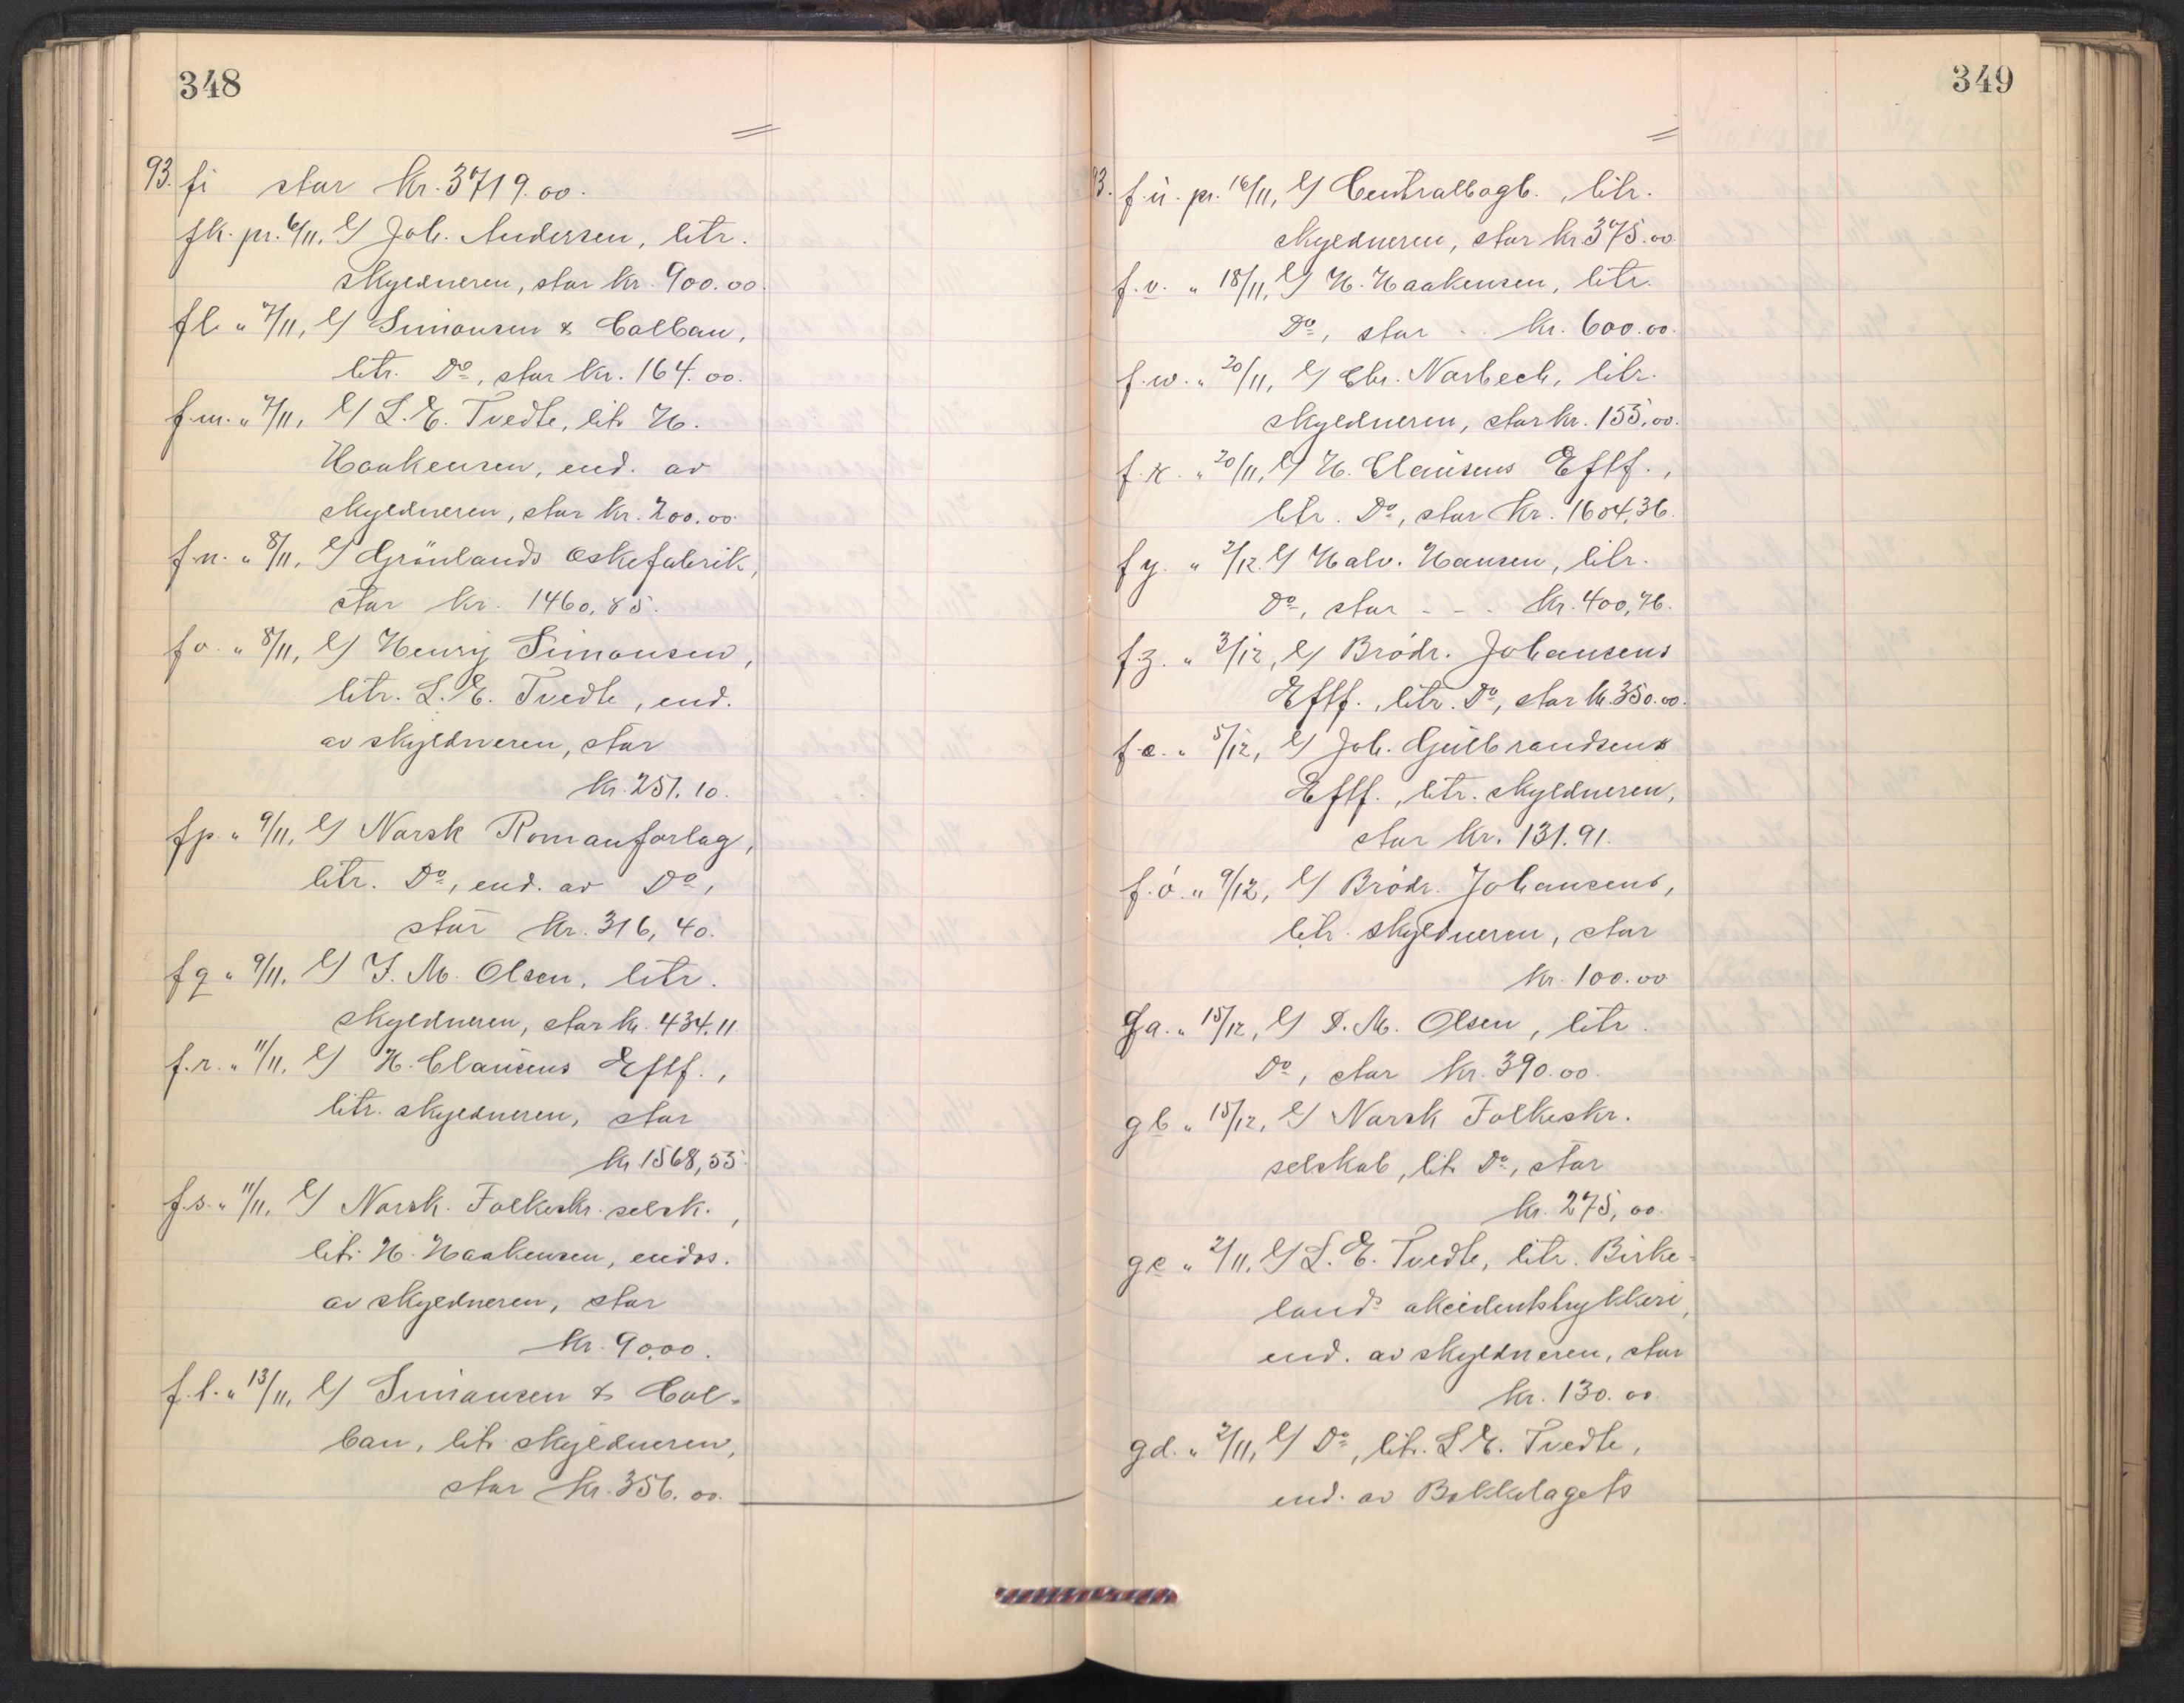 348
93. fi stor kr. 3719.00.
fk. pr. 6/11, e/ Joh. Andersen, litr.
skyldneren, stor kr. 900.00
fl. " 7/11, e/ Simonsen & Colban,
litr. Do, stor kr. 164.00.
f.m. " 7/11, e/ L. E. Tvedte, litr H.
Haakensen, end. av
skyldneren, stor kr. 200.00.
f.n. " 8/11, e/ Grönlands Eskefabrik,
stor kr. 1460,85.
fo. " 8/11, e/ Henry Simonsen,
litr. L. E. Tvedte, end.
av skyldneren, stor
kr. 251.10.
fp. " 9/11, e/ Norsk Romanforlag,
litr. Do, end. av Do,
stor kr. 316,40.
fq " 9/11, e/ I. M. Olsen, litr.
skyldneren, stor kr. 434.11
f.r. " 11/11, e/ H. Clausens Eftf.,
litr. skyldneren, stor
kr 1568,55.
f.s. " 11/11, e/ Norsk. Folkeskr. selsk.,
litr H. Haakensen, endos.
av skyldneren, stor
kr. 90.00.
f.t. " 13/11, e/ Simonsen & Col-
ban, litr skyldneren,
stor kr. 356.00.
349
93. f.ü. pr. 16/11, e/ Centralbogb., litr.
skyldneren, stor kr. 375.00
f.v. " 18/11, e/ H. Haakensen, litr.
Do, stor .. kr. 600.00.
f.w. " 20/11, e/ Chr. Norbech, litr.
skyldneren, stor kr. 155,00.
f.x. " 20/11, e/ H. Clausens Eftf.,
litr. Do, stor kr. 1604,36.
fy. " 2/12. e/ Halv. Hansen, litr.
Do, stor - - . kr. 400,76.
f.z. " 3/12, e/ Brödr. Johansens
Eftf., litr. Do, stor kr. 350.00.
f.æ. " 5/12, e/ Joh. Gulbrandsens
Eftf., litr. skyldneren,
stor kr. 131.91.
f.ö. " 9/12, e/ Brödr. Johansens,
litr. skyldneren, stor
kr. 100.00
ga. " 15/12, e/ I. M. Olsen, litr.
Do, stor kr. 390.00.
gb " 15/12, e/ Norsk Folkeskr.
selskab, litr Do, stor
kr. 275,00.
gc " 2/11, e/ L. E. Tvedte, litr. Birke-
lands akcidenttrykkeri,
end. av skyldneren, stor
kr. 130.00.
gd. " 2/11, e/ Do, litr. L. E. Tvedte,
end. av Bokkelagets